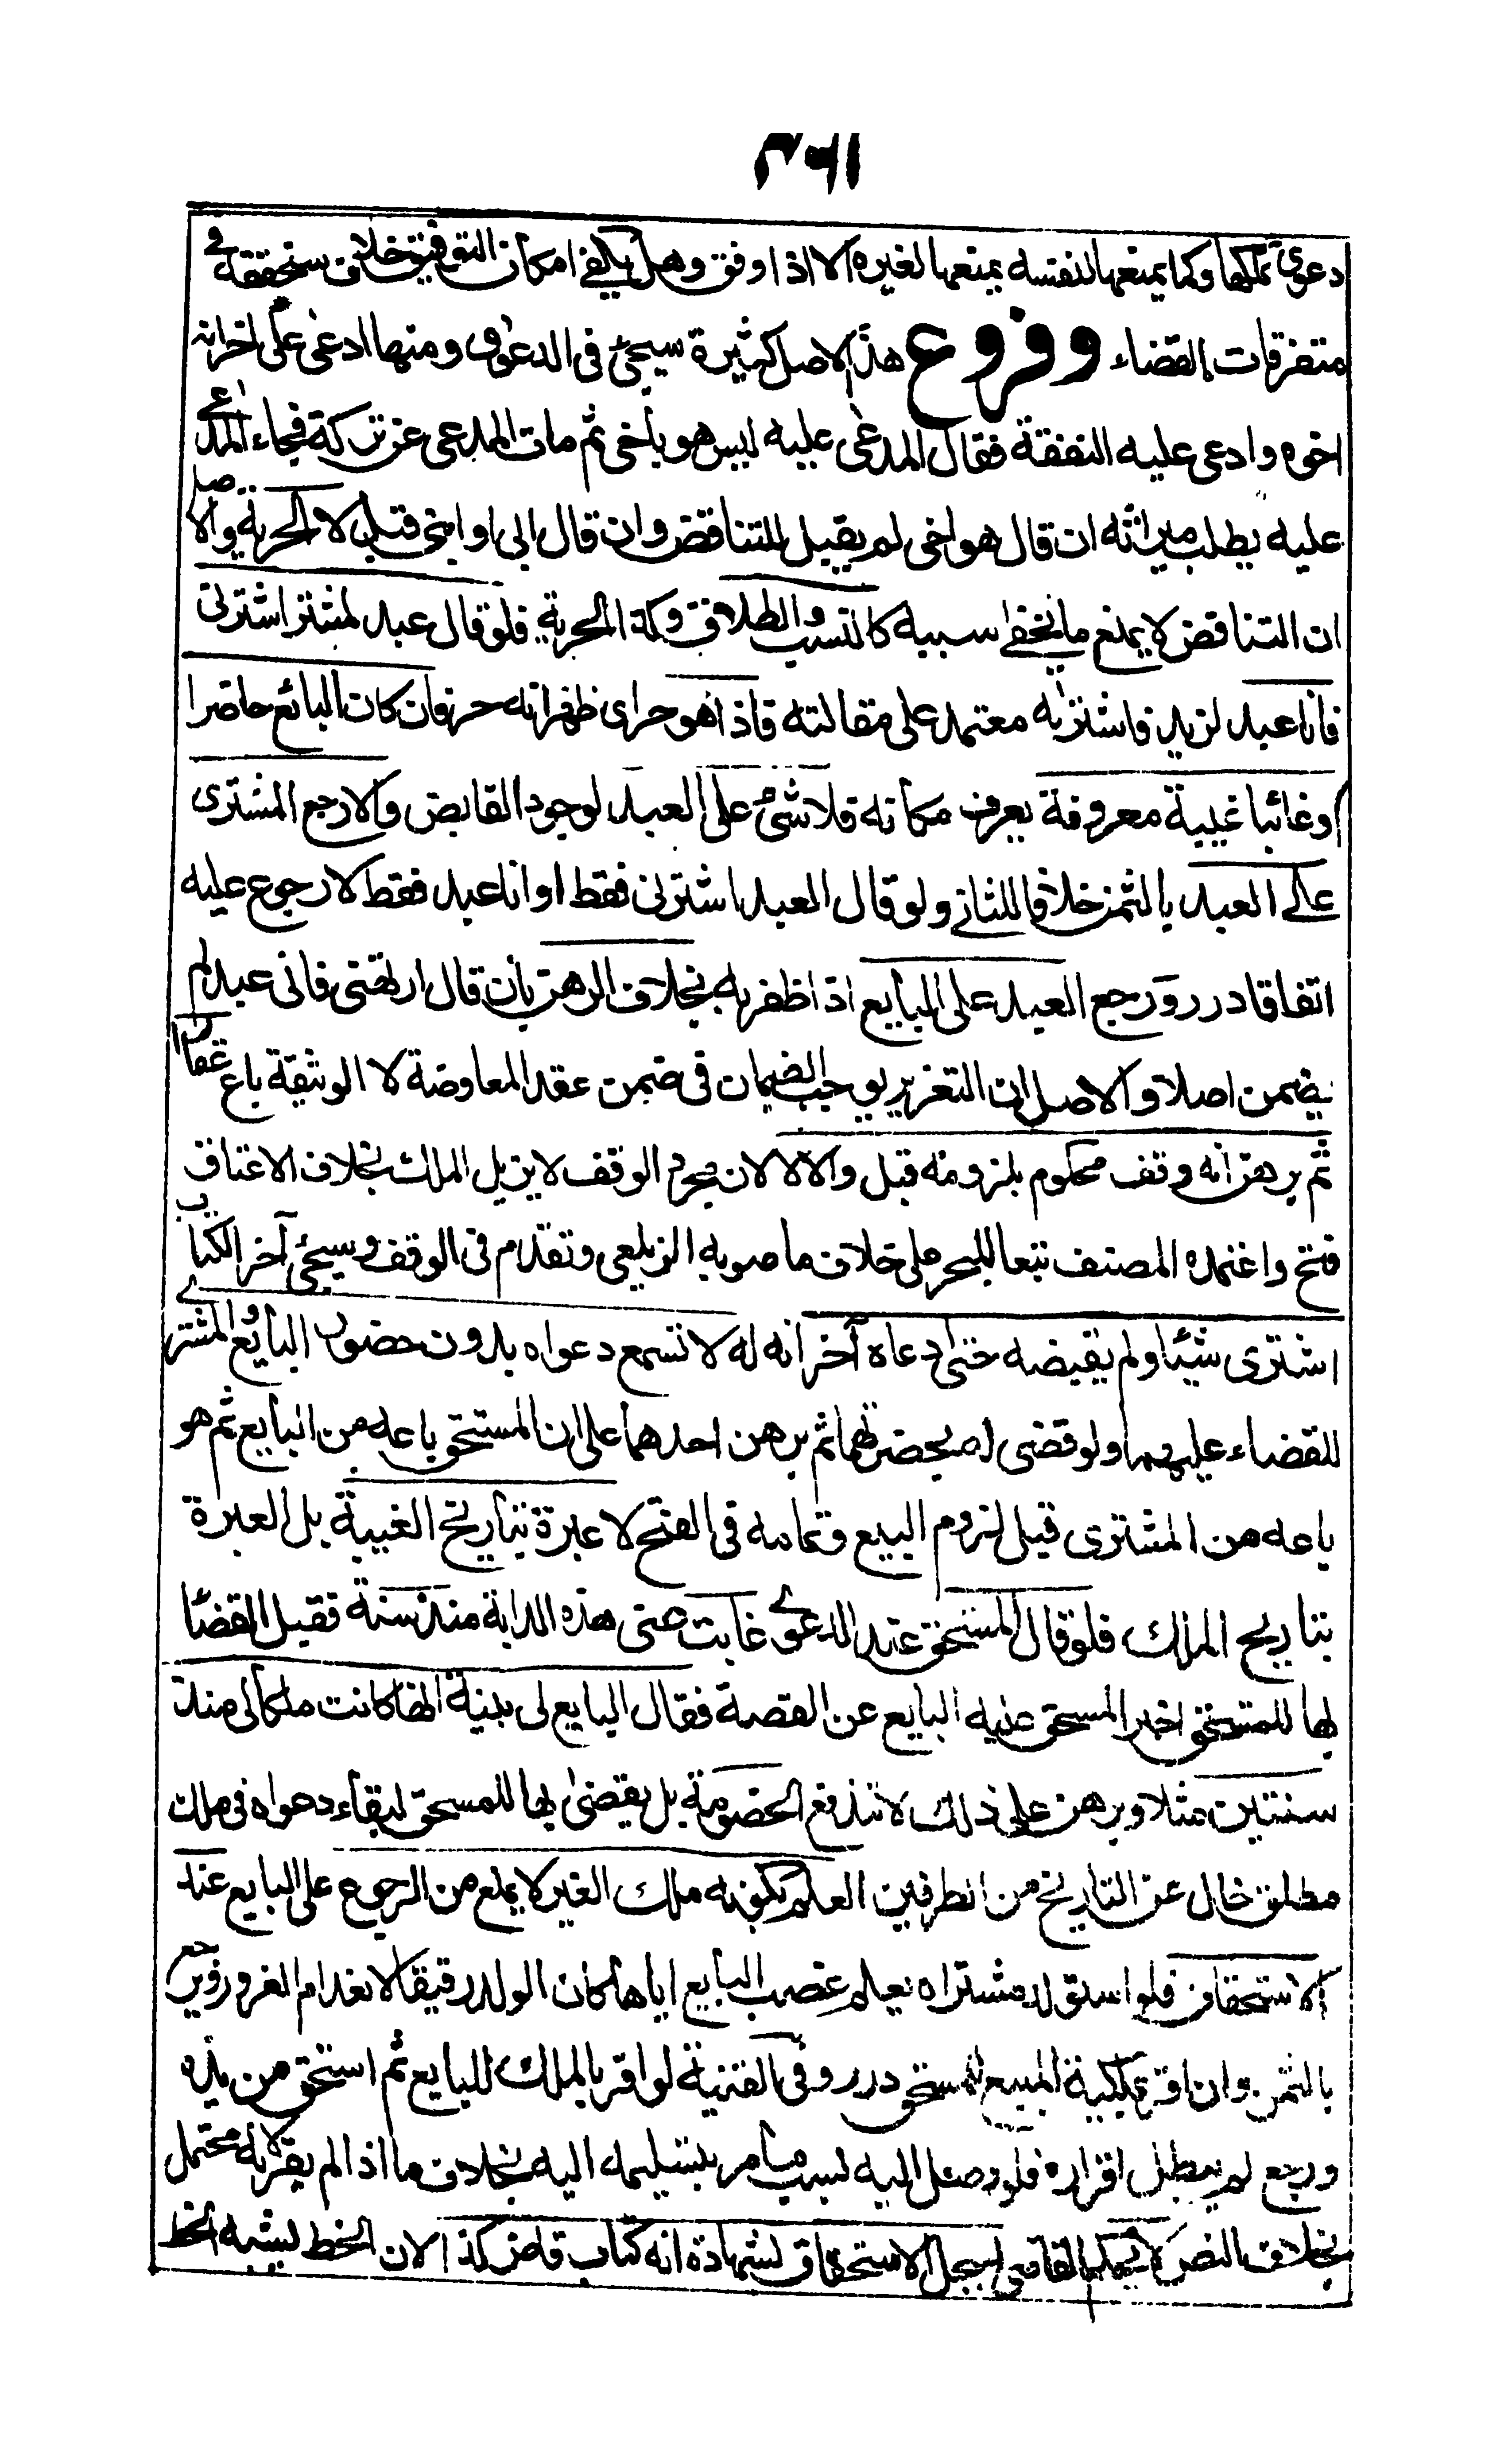 ٣٩١
دعوى تملكها وكما يمنعها لنفسه يمنعها لغيره الا اذا وفق وهل يكفي امكان التوفيق خلاف سنحققه في
متفرقات القضاء وفروع هذا الاصل كثيرة سيجئ في الدعوى ومنها ادعى على اخر انه
اخوه وادعى عليه النفقة فقال المدعى عليه ليس هو باخي ثم مات المدعى عن تركة فجاء المدعى
عليه يطلب ميراثه ان قال هو اخي لم يقبل للتناقض وان قال ابي او ابني قبل لا الحرية والاصل
ان التناقض لا يمنع ما يخفى سببه كالنسب والطلاق وكذا الحرية فلو قال عبد لمشتر اشترني
فانا عبد لزيد فاشتراه معتمد على مقالته فاذا هو حر اى ظهر انه حر فان كان البائع حاضرا
او غائبا غيبة معروفة يعرف مكانه فلا شئ على العبد لوجود القابض والا رجع المشترى
على العبد بالثمن خلافا للثاني ولو قال العبد اشترني فقط او انا عبد فقط لا رجوع عليه
اتفاقا درر ورجع العبد على البايع اذا ظفر به بخلاف الرهن بان قال ارتهني فاني عبد لم
يضمن اصلا والاصل ان التغرير يوجب الضمان في ضمن عقد المعاوضة لا الوثيقة باع عقارا
ثم برهن انه وقف محكوم بلزومه قبل والا لا لان مجرد الوقف لا يزيل الملك بخلاف الاعتاق
فتح واعتمده المصنف تبعا للبحر على خلاف ما صوبه الزيلعي وتقدم في الوقف وسيجئ آخر الكتاب
اشترى شيئا ولم يقبضه حتى ادعاه آخر انه له لا تسمع دعواه بدون حضور البايع والمشتري
للقضاء عليهما ولو قضى له بحضرتهما ثم برهن احدهما على ان المستحق باعه من البايع ثم هو
باعه من المشترى قبل لزوم البيع وتمامه في الفتح لا عبرة بتاريخ الغيبة بل العبرة
بتاريخ الملك فلو قال المستحق عند الدعوى غابت عني هذه الدابة منذ سنة فقبل القضا
بها للمستحق اخبر المستحق عليه البايع عن القصة فقال البايع لى بينة انها كانت ملكا لى منذ
سنتين مثلا وبرهن على ذلك لا تندفع الخصومة بل يقضى بها للمستحق لبقاء دعواه في ملك
مطلق خال عن التاريخ من الطرفين العلم بكونه ملك الغير لا يمنع من الرجوع على البايع عند
الاستحقاق فلو استولد مشتراه يعلم غصب البايع اياها كان الولد رقيقا لانعدام الغرور ويرجع
بالثمن وان اقر بملكية المبيع للمستحق درر وفي القنية لو اقر بالملك للبايع ثم استحق من يده
ورجع لم يبطل اقراره فلو وصل اليه بسبب ما امر بتسليمه اليه بخلاف ما اذا لم يقر لانه محتمل
بخلاف النص لا يحكم القاضي بسجل الاستحقاق بشهادة انه كتاب قاض كذا لان الخط يشبه الخط